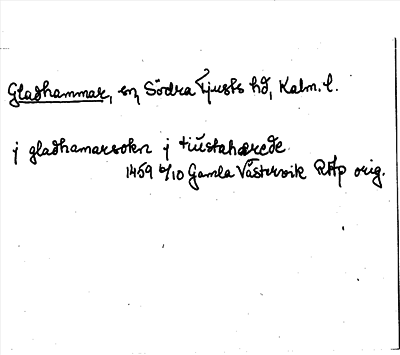 Gladhammar, sn, Södra Tjusts hd, Kalm. l.
j gladhamarsokn j tiustahærede
1459 6/10 Gamla Västervik RAp orig.